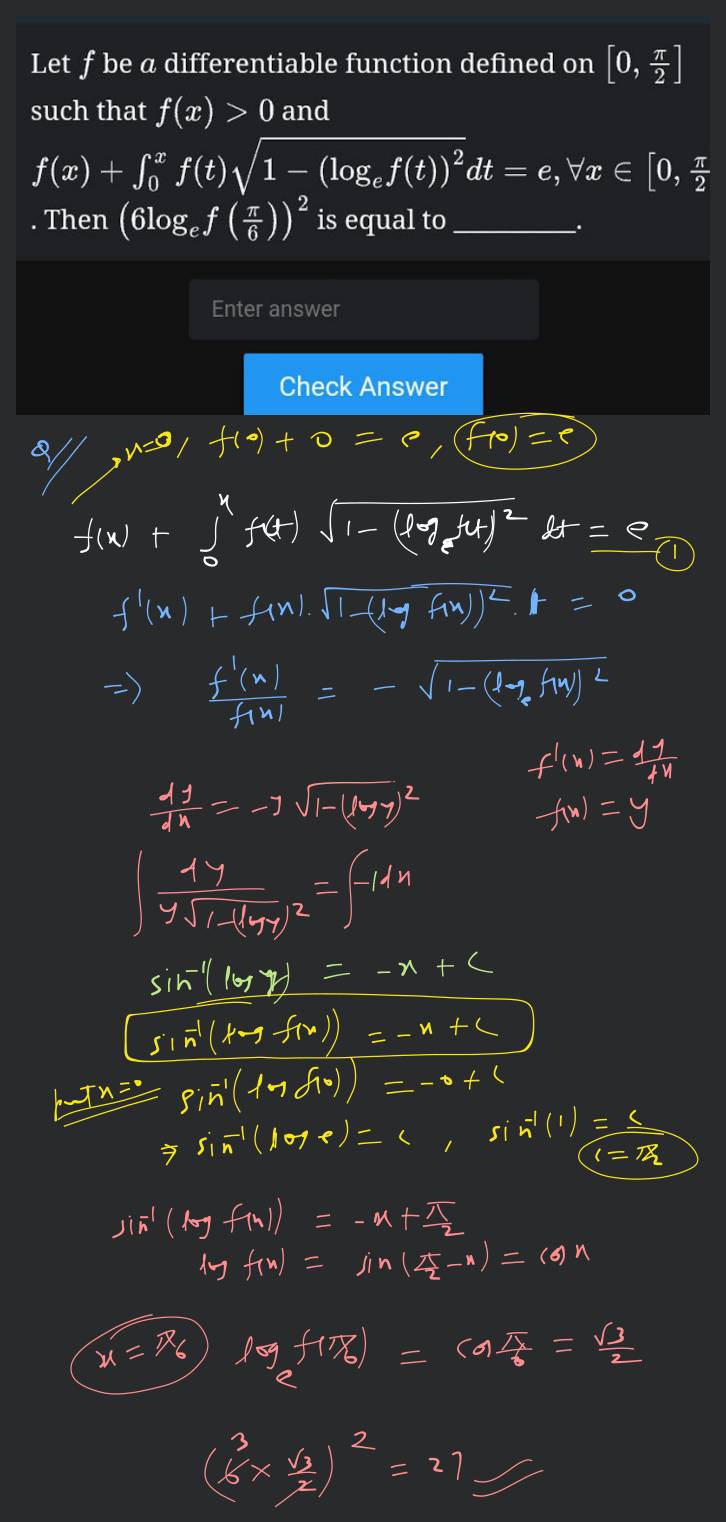 Let f be a differentiable function defined on [0, π/2]
such that f(x) > 0 and
f(x) + ∫₀ˣ f(t)√(1 − (logₑ f(t))²) dt = e, ∀x ∈ [0, π/2
. Then (6logₑ f (π/6))² is equal to ________.
Enter answer
Check Answer
Q// x=0, f(0) + 0 = e, f(0) = e
f(x) + ∫₀ˣ f(t) √(1 − (logₑ f(t))² dt = e ①
f'(x) + f(x). √(1−(log f(x))². 1 = 0
⇒ f'(x)/f(x) = − √(1−(logₑ f(x))²
f'(x) = dy/dx
dy/dx = −y √(1−(log y)²
f(x) = y
∫ dy/(y√(1−(log y)²) = ∫−1dx
sin⁻¹(log y) = −x + c
sin⁻¹(log f(x)) = −x + c
put x=0 sin⁻¹(log f(0)) = −0 + c
⇒ sin⁻¹(log e) = c , sin⁻¹(1) = c
c = π/2
sin⁻¹(log f(x)) = −x + π/2
log f(x) = sin(π/2 − x) = cos x
x = π/6 logₑ f(π/6) = cos π/6 = √3/2
3
(6 × √3/2)² = 27